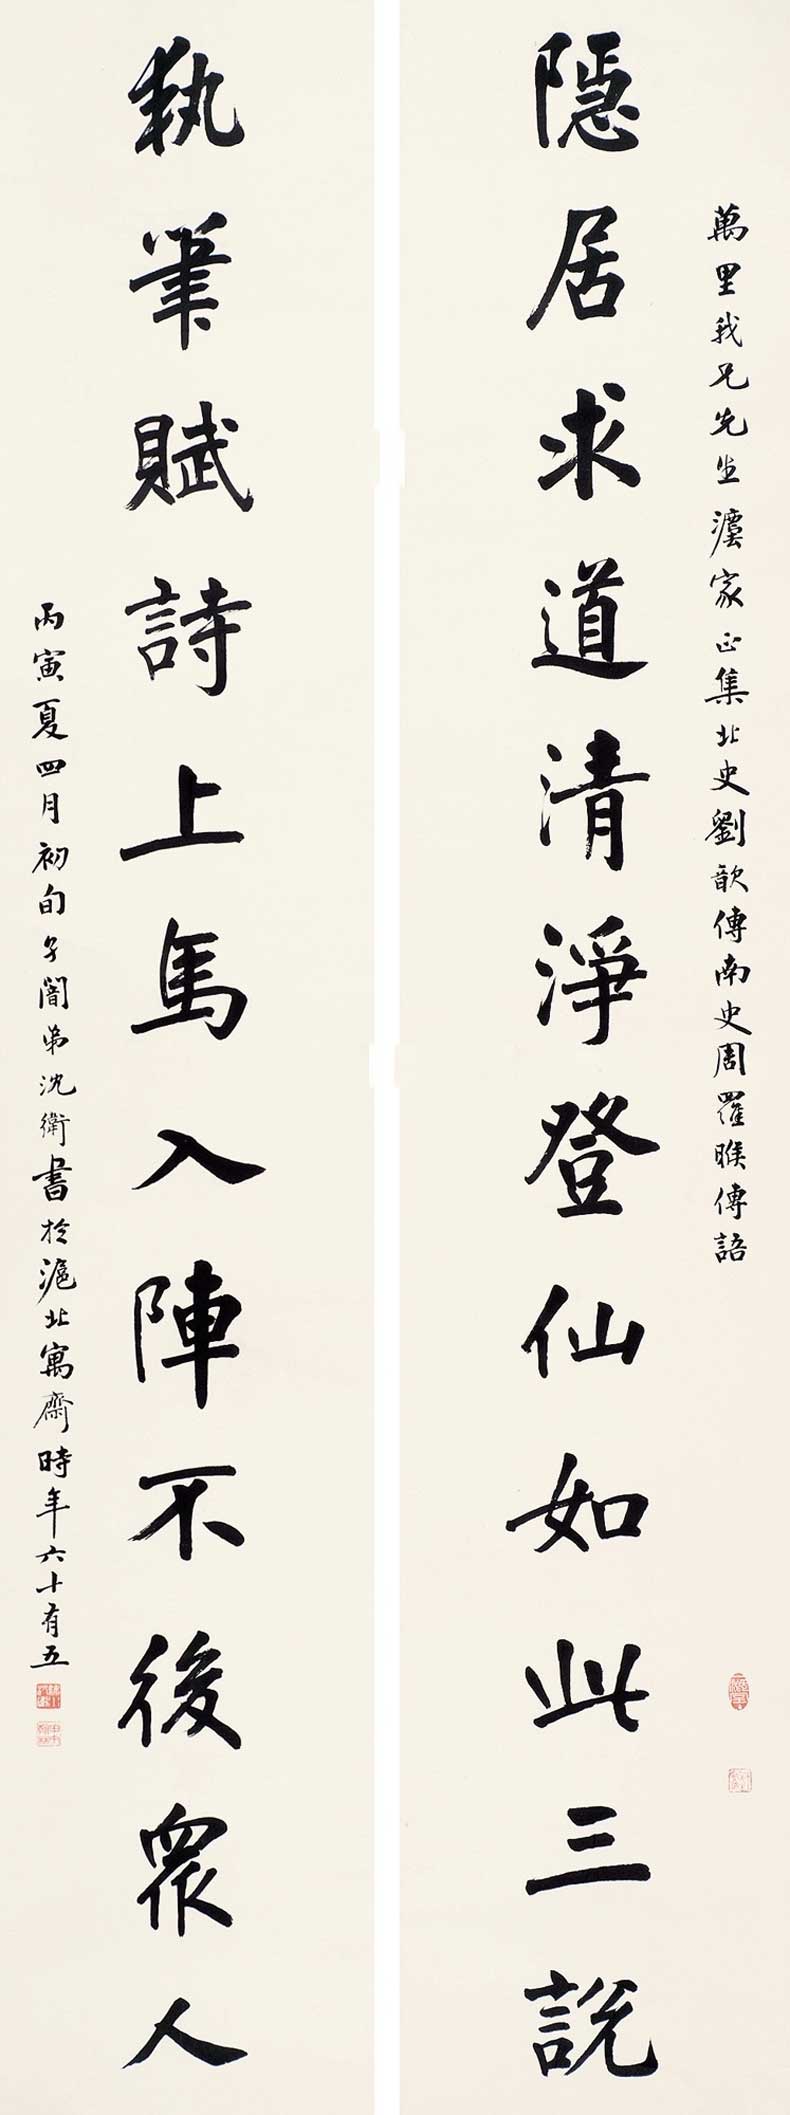 萬里我兄先生灋家正集北史劉歊傳南史周羅睺傳語
隱居求道清淨登仙如此三說
執筆賦詩上馬入陣不後眾人
丙寅夏四月初旬弟沈衛書於滬北寓齋時年六十有五